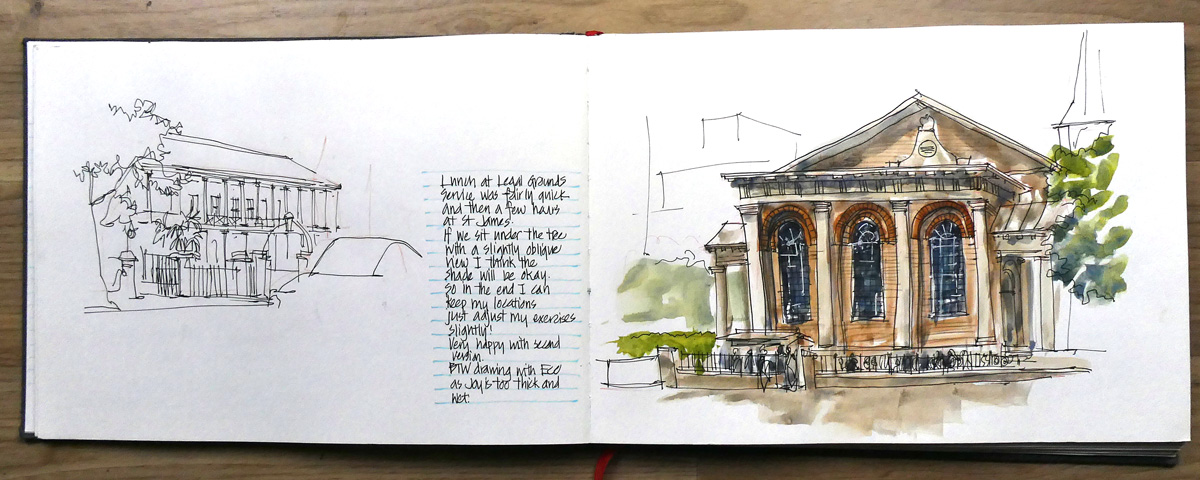 Lunch at Legal Grounds
service was fairly quick
and then a few hours
at St James.
If we sit under the tree
with a slightly oblique
view I think the
shade will be okay.
so in the end I can
keep my locations
just adjust my exercises
slightly!
Very happy with second
version.
BTW drawing with Eco
as Joy is too thick and
wet.